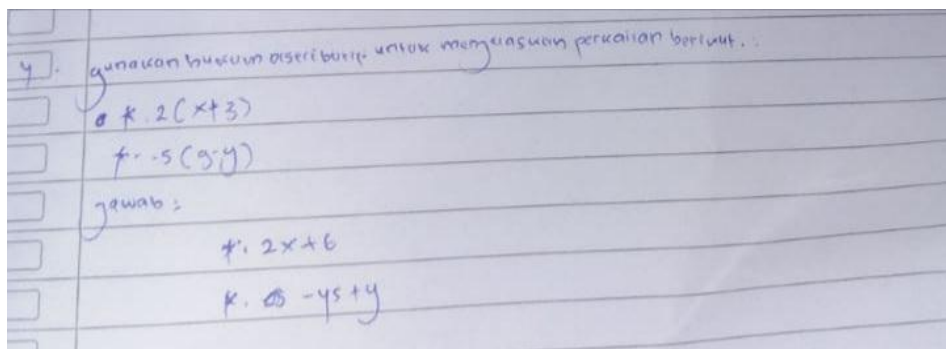 4. gunakan hukum diseributif untuk menguasuan perkalian berikut.
*. 2(x+3)
*. -5(9-y)
Jawab :
*. 2x+6
*. -45+y